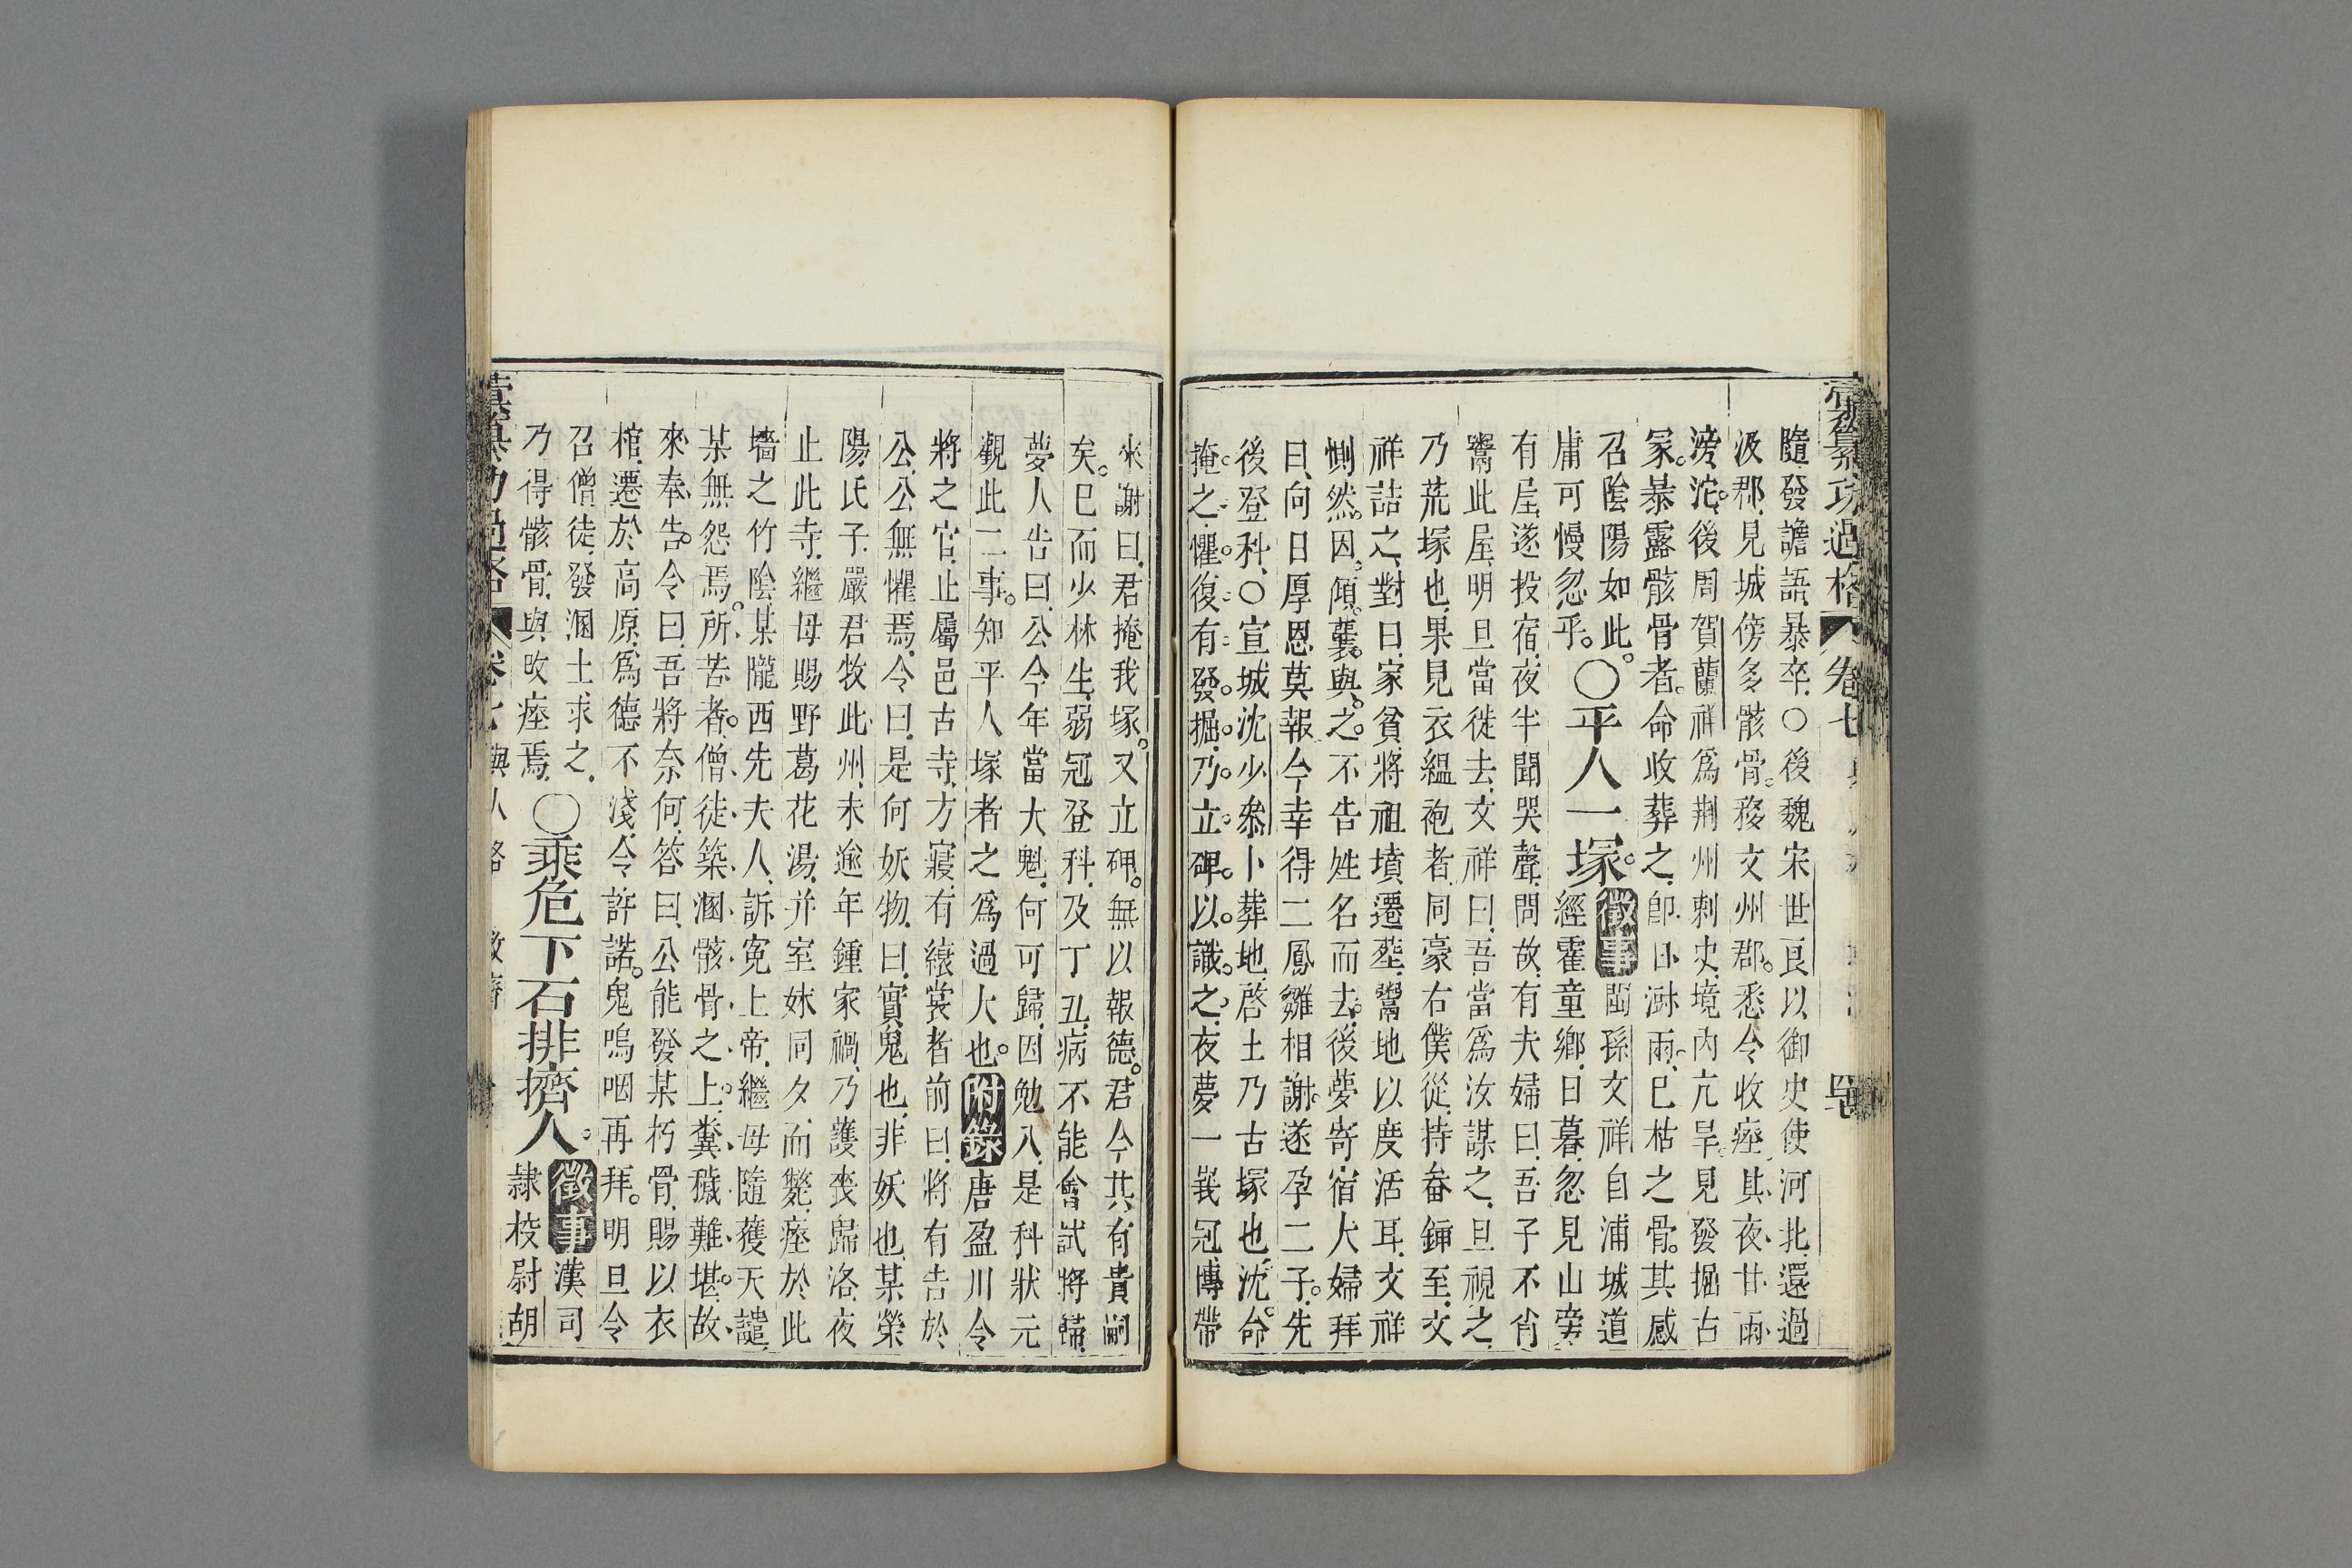 彙纂功過格 卷七
隨發譫語暴卒○後魏宋世良以御史使河北還過
汲郡見城傍多骸骨移文州郡悉令收瘞其夜甘雨
滂沱後周賀蘭祥為荆州刺史境內亢旱見發掘古
冢暴露骸骨者命收葬之即日澍雨已枯之骨其感
召陰陽如此○平人一塚徵事閩孫文祥自浦城道
庸可慢忽乎
經霍童鄉日暮忽見山旁
有屋遂投宿夜半聞哭聲問故有夫婦曰吾子不肖
鬻此屋明旦當徙去文祥曰吾當為汝謀之旦視之
乃荒塚也果見衣縕袍者同豪右僕從持畚鍤至文
祥詰之對曰家貧將祖墳遷塟鬻地以度活耳文祥
惻然因傾囊與之不告姓名而去後夢寄宿大婦拜
曰向日厚恩莫報今幸得二鳳雛相謝遂孕二子先
後登科○宣城沈少叅卜葬地啓土乃古塚也沈命
掩之懼復有發掘乃立碑以識之夜夢一峩冠博帶
來謝曰君掩我塚又立碑無以報德君今其有貴嗣
矣已而少林生弱冠登科及丁丑病不能會試將歸
夢人告曰公今年當大魁何可歸因勉入是科狀元
觀此二事知平人塚者之為過大也附錄唐盈川令
將之官止屬邑古寺方寢有縗裳者前曰將有告於
公公無懼焉令曰是何妖物曰實鬼也非妖也某榮
陽氏子嚴君牧此州未逾年鍾家禍乃護喪歸洛夜
止此寺繼母賜野葛花湯并室妹同夕而斃瘞於此
墻之竹陰某隴西先夫人訴寃上帝繼母隨獲天譴
某無怨焉所苦者僧徒築溷骸骨之上糞穢難堪故
來奉告令曰吾將奈何答曰公能發某朽骨賜以衣
棺遷於高原為德不淺令許諾鬼嗚咽再拜明旦令
召僧徒發溷土求之
乃得骸骨與改瘞焉○乘危下石排擠人徵事漢司
隷校尉胡
彙纂功過格 卷七 與人格